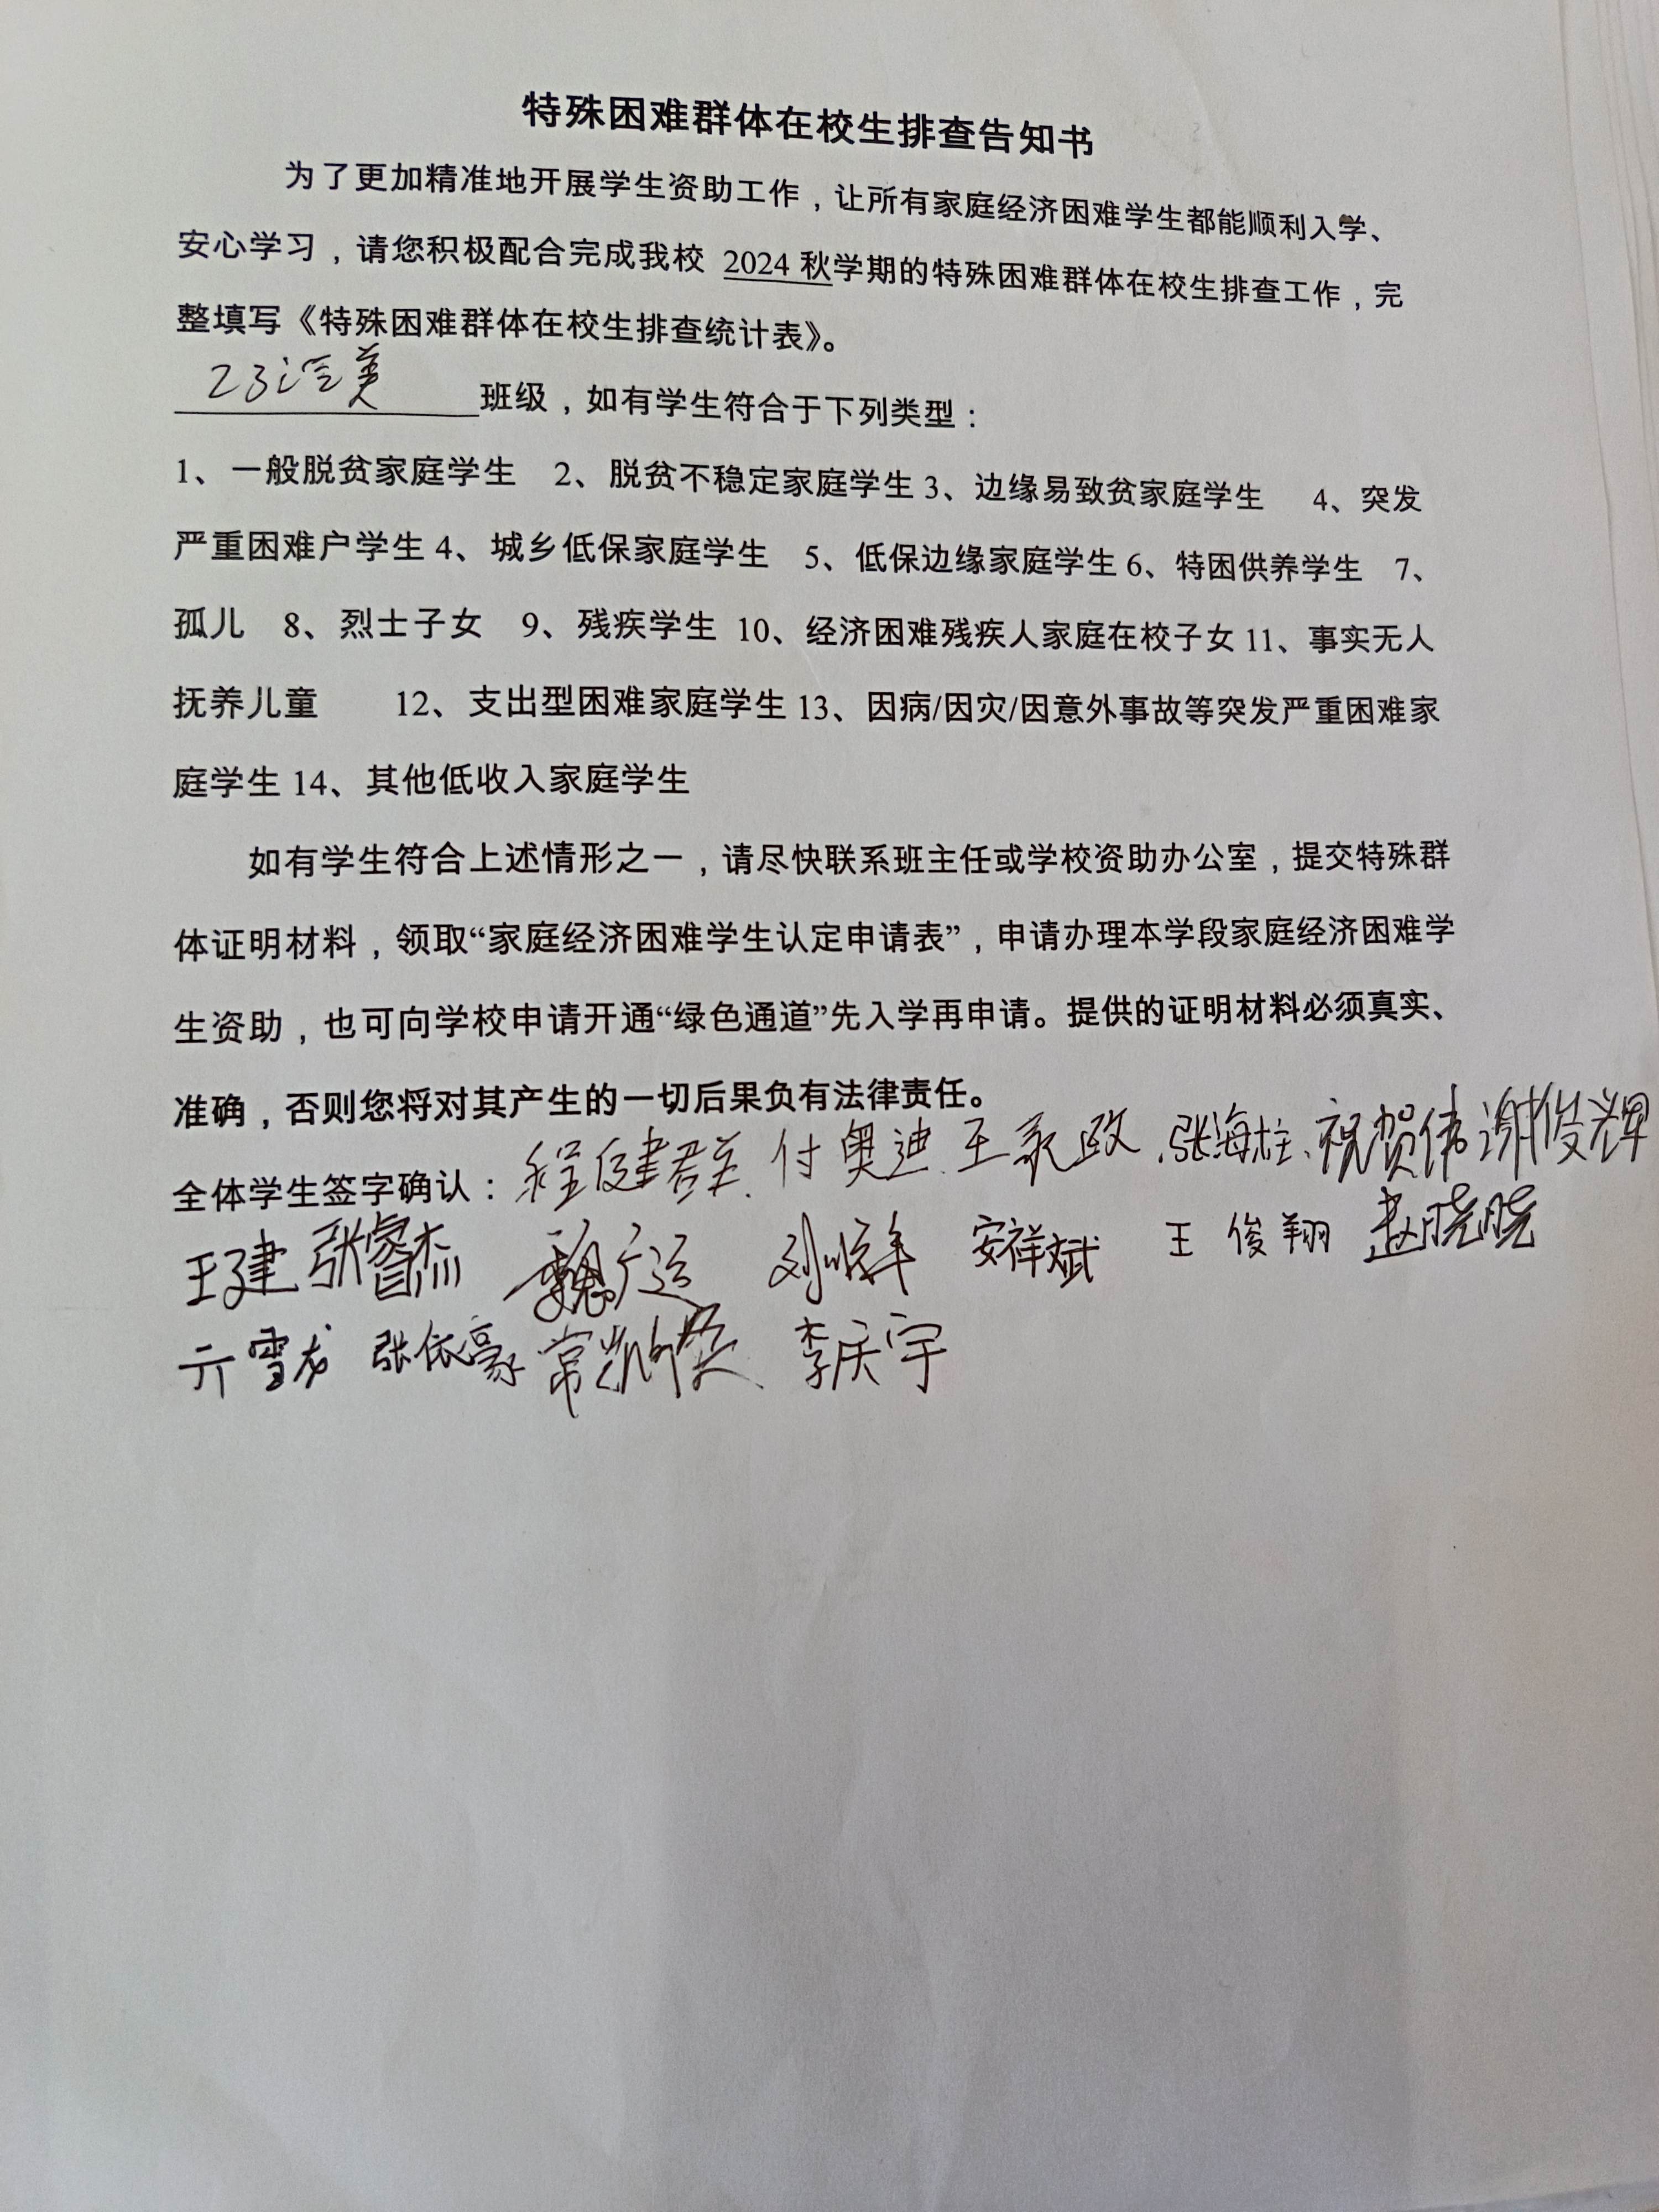 特殊困难群体在校生排查告知书
为了更加精准地开展学生资助工作，让所有家庭经济困难学生都能顺利入学、
安心学习，请您积极配合完成我校 2024 秋学期的特殊困难群体在校生排查工作，完
整填写《特殊困难群体在校生排查统计表》。
23汽美班级，如有学生符合于下列类型：
1、一般脱贫家庭学生 2、脱贫不稳定家庭学生 3、边缘易致贫家庭学生 4、突发
严重困难户学生 4、城乡低保家庭学生 5、低保边缘家庭学生 6、特困供养学生 7、
孤儿 8、烈士子女 9、残疾学生 10、经济困难残疾人家庭在校子女 11、事实无人
抚养儿童 12、支出型困难家庭学生 13、因病/因灾/因意外事故等突发严重困难家
庭学生 14、其他低收入家庭学生
如有学生符合上述情形之一，请尽快联系班主任或学校资助办公室，提交特殊群
体证明材料，领取“家庭经济困难学生认定申请表”，申请办理本学段家庭经济困难学
生资助，也可向学校申请开通“绿色通道”先入学再申请。提供的证明材料必须真实、
准确，否则您将对其产生的一切后果负有法律责任。
全体学生签字确认：程健群、付奥迪、王 政、张海柱、祝贺伟 谢俊辉
王建 张睿杰 魏广运 刘顺祥 安祥斌 王俊翔 赵晓晓
亓雪龙 张依豪 常凯 李庆宇